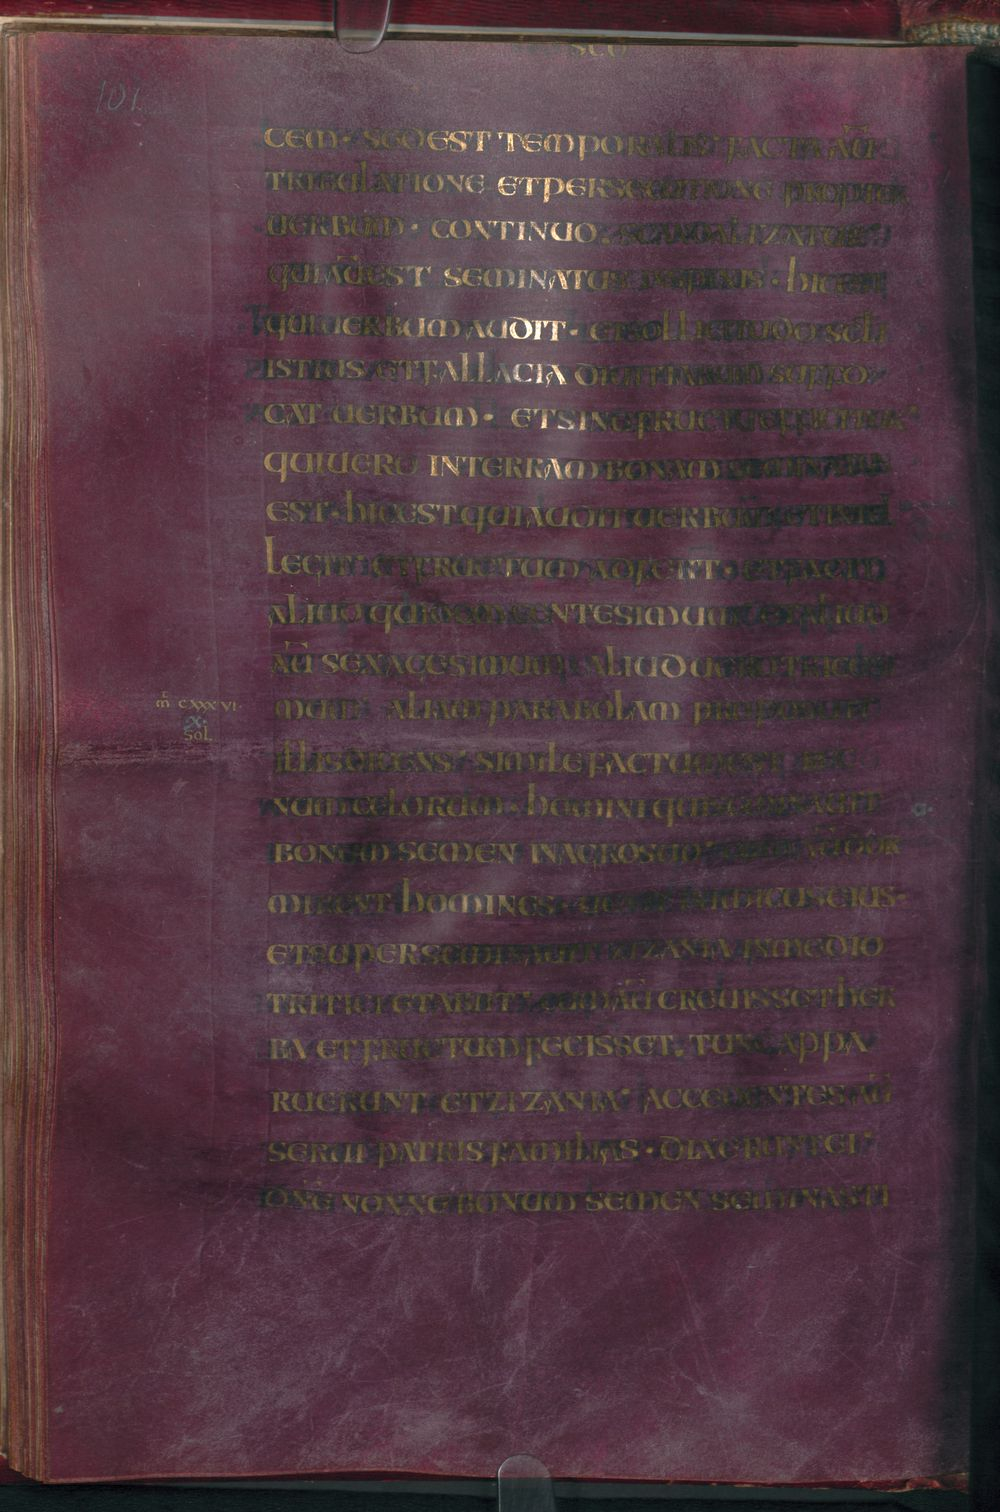 SCD
101
CEM· SED EST TEMPORALIS· FACTA AŪ
TRIBULATIONE ET PERSECUTIONE PROPTER
UERBUM· CONTINUO SCANDALIZATUR·
QUI AŪ EST SEMINATUS IN SPINIS· HIC EST
QUI UERBUM AUDIT· ET SOLLICITUDO SCLI
ISTIUS ET FALLACIA DIUITIARUM SUFFO
CAT UERBUM· ET SINE FRUCTU EFFICITUR·
QUI UERO IN TERRAM BONAM SEMINATUS
EST· HIC EST QUI AUDIT UERBUM ET INTEL
LEGIT ET FRUCTUM ADFERT· ET FACIT
ALIUD QUIDEM CENTESIMUM ALIUD
AŪ SEXAGESIMUM· ALIUD UERO TRICESI
MUM· ALIAM PARABOLAM PROPOSUIT
m̄ CXXXVI·
X·
SOL
ILLIS DICENS· SIMILE FACTUM EST REG
NUM CELORUM· HOMINI QUI SEMINAUIT
BONUM SEMEN IN AGRO SUO· CUM AŪ DOR
MIRENT HOMINES· UENIT INIMICUS EIUS·
ET SUPERSEMINAUIT ZIZANIA IN MEDIO
TRITICI ET ABIIT· CUM AŪ CREUISSET HER
BA ET FRUCTUM FECISSET· TUNC APPA
RUERUNT ET ZIZANIA· ACCEDENTES AŪ
SERUI PATRIS FAMILIAS· DIXERUNT EI·
DN̄E NONNE BONUM SEMEN SEMINASTI